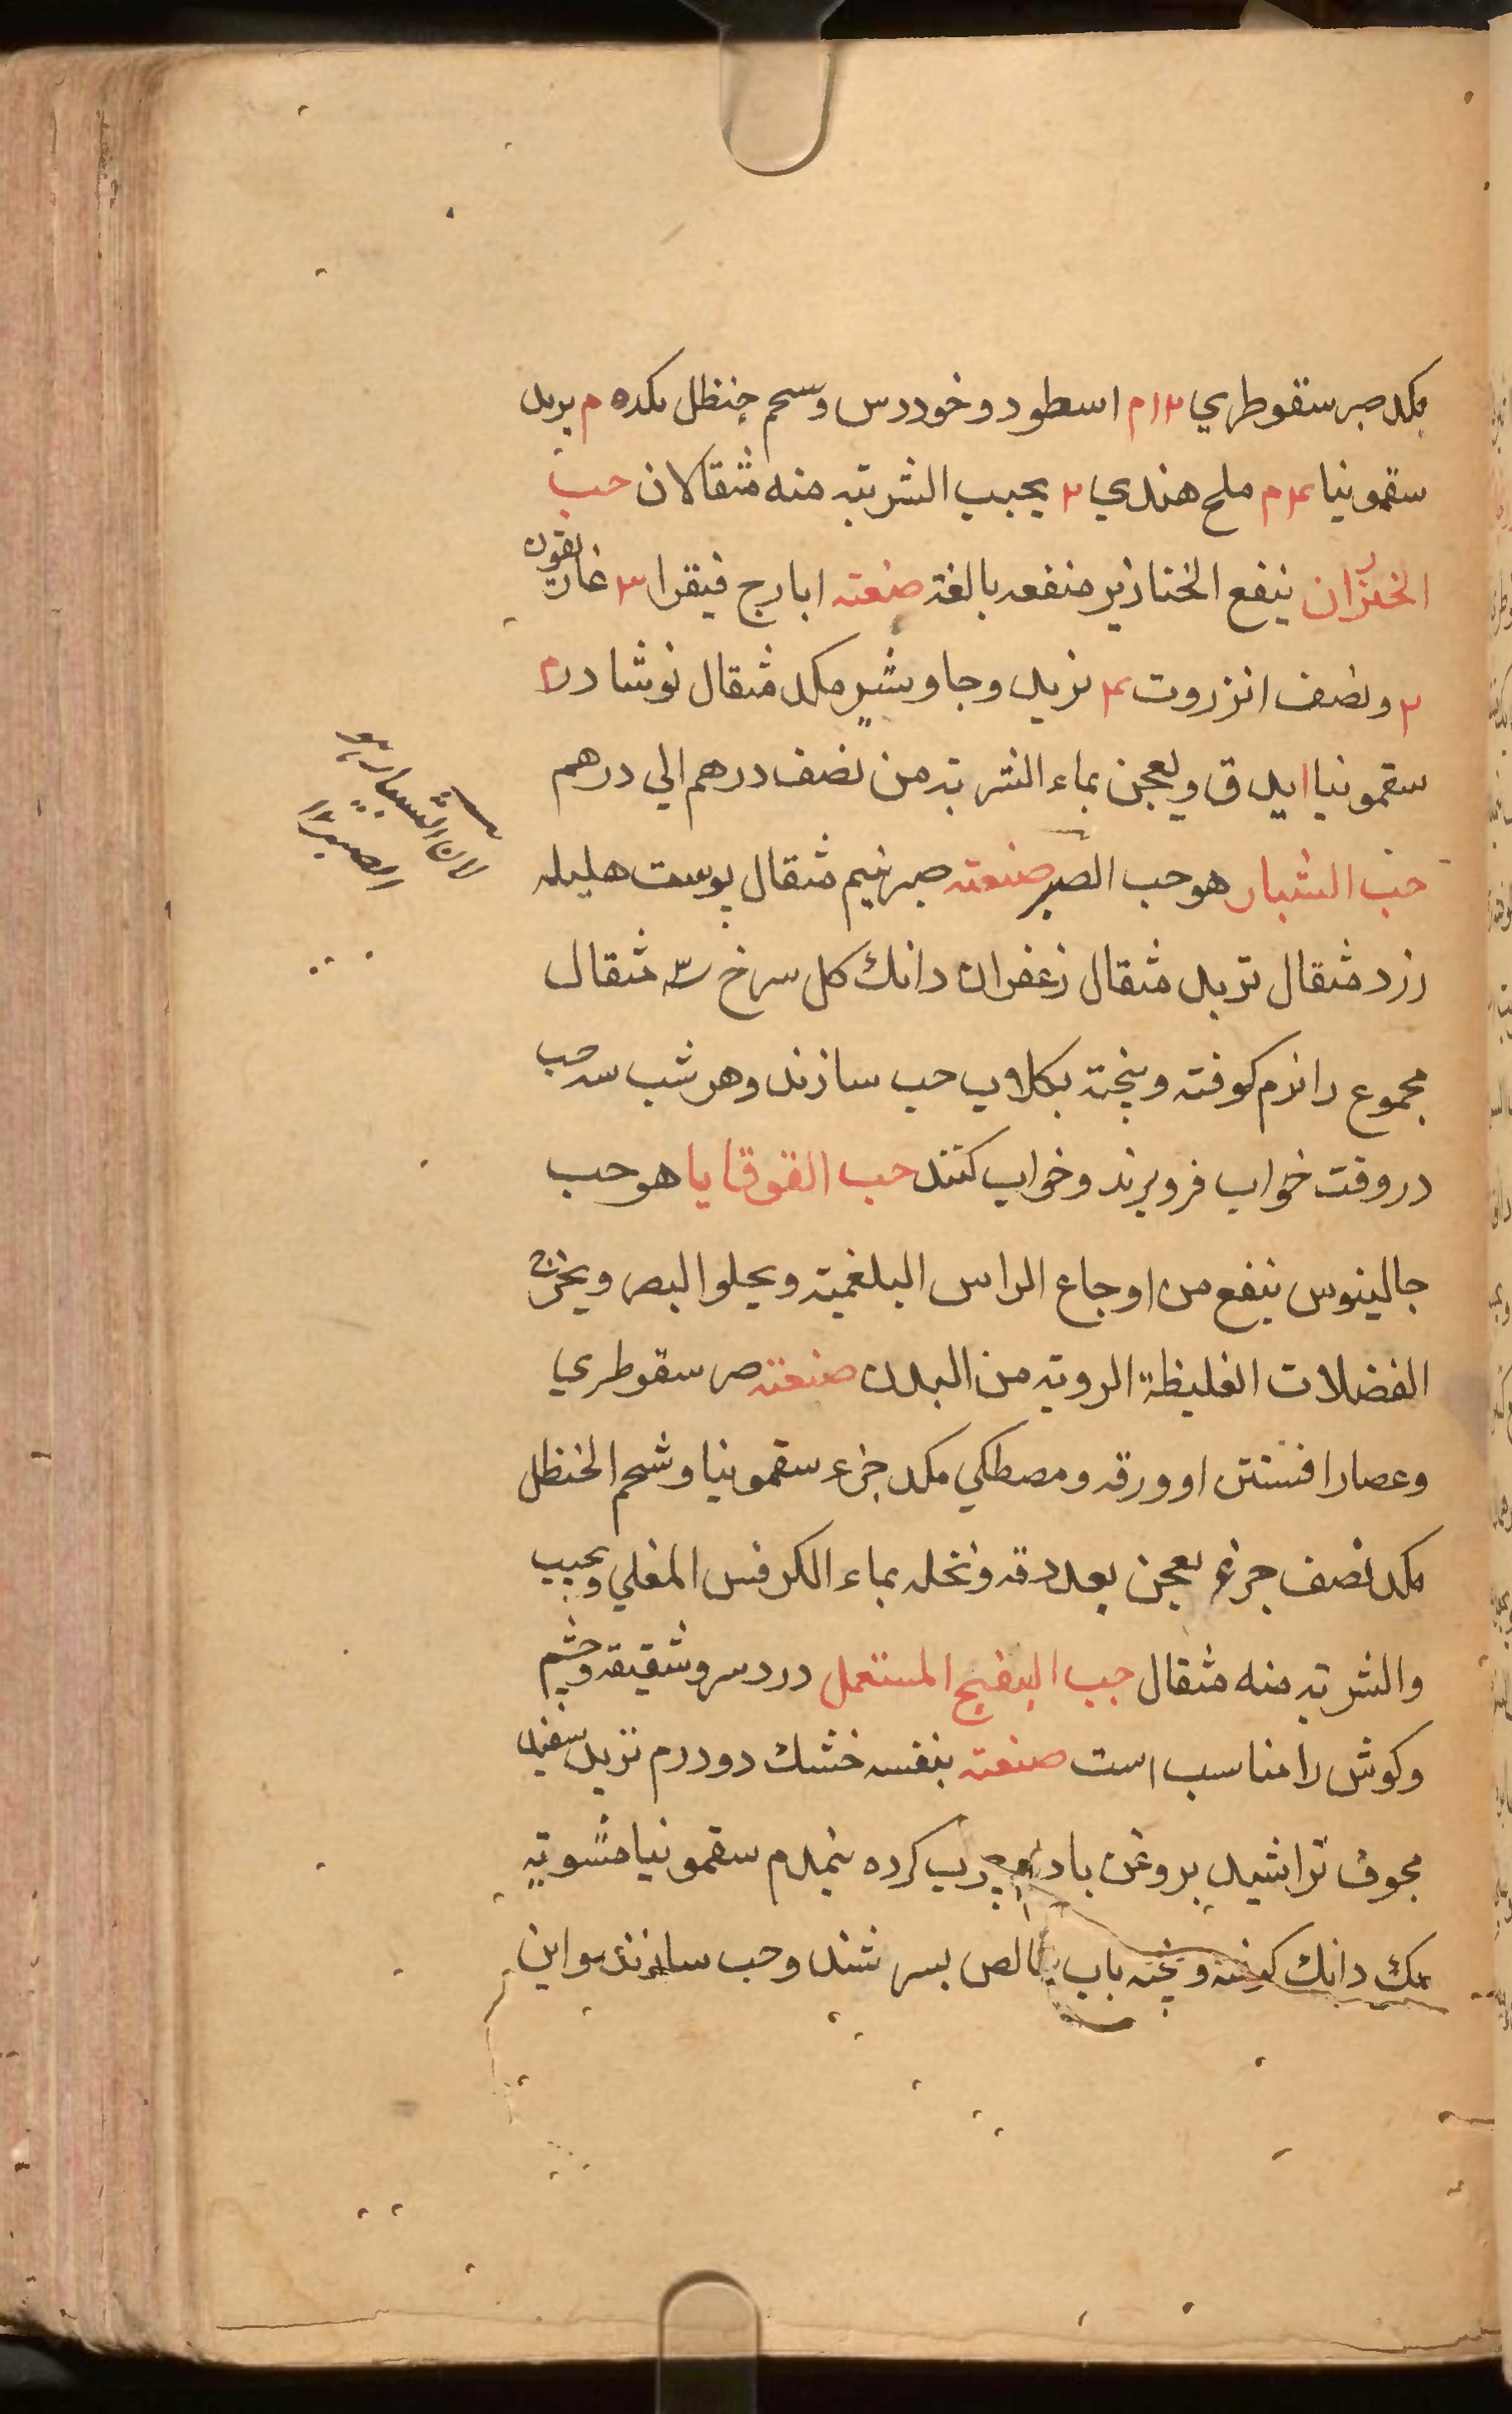 مکد صبر سقوطري ۱۲م اسطودوخودرس وسحم حنظل مکد ۵م بربد
سقمونیا ۴م ملح هندي ۲ یحبب الشربته منه مثقالان حب
الخنزران ینفع الخنازیر منفعه بالغة صنعته ابارج فیقرا ۳ غاریقون
۲ ونصف انزروت ۴ تربد وجاوشیر مکد مثقال نوشادر
سقمونیا ایدق ویعجن بماء الشربته من نصف درهم الي درهم
حب الشبار هو حب الصبر صنعته صبر نیم مثقال پوست هلیله
زرد مثقال تربد مثقال زعفران دانك کل سرخ سه مثقال
مجموع را نرم کوفته وبیخته بکلاب حب سازند وهر شب سه حب
در وقت خواب فرو برند وخواب کنند حب القوقایا هو حب
جالینوس ینفع من اوجاع الراس البلغمیة ویجلوا البصر ویخرج
الفضلات الغلیظة الرویه من البدن صنعته صبر سقوطري
وعصار افسنتن او ورقه ومصطکي مکد جزء سقمونیا وشحم الحنظل
مکد نصف جزء یعجن بعد دقه ونخله بماء الکرفس المغلي ویحبب
والشربته منه مثقال حب البنفسج المستعمل درد سر وشقیقه وچشم
وکوش را مناسب است صنعته بنفسه خشك دو درم تربد سفید
مجوف تراشید بروغن بادام چرب کرده نیمدرم سقمونیا مشویه
یك دانك کوفته وبیخته باب خالص بسرشند وحب سازند واین